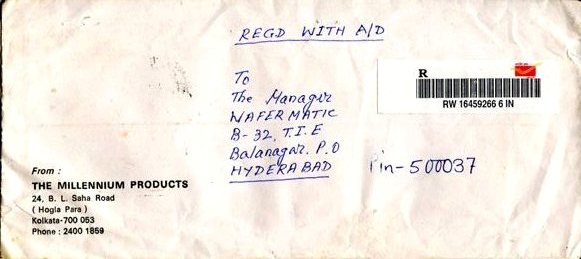 REGD WITH A/D
R
RW 16459266 6 IN
To
The Manager
WAFERMATIC
B-32, T.I.E
Balanagar. P.O
HYDERABAD
Pin-500037
From :
THE MILLENNIUM PRODUCTS
24, B. L. Saha Road
( Hogla Para )
Kolkata-700 053
Phone : 2400 1859